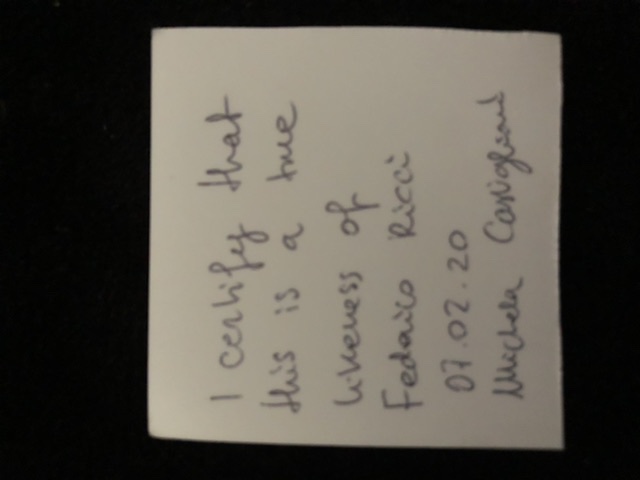 I certify that
this is a true
likeness of
Federico Ricci
07.02.20
Michela Castiglioni